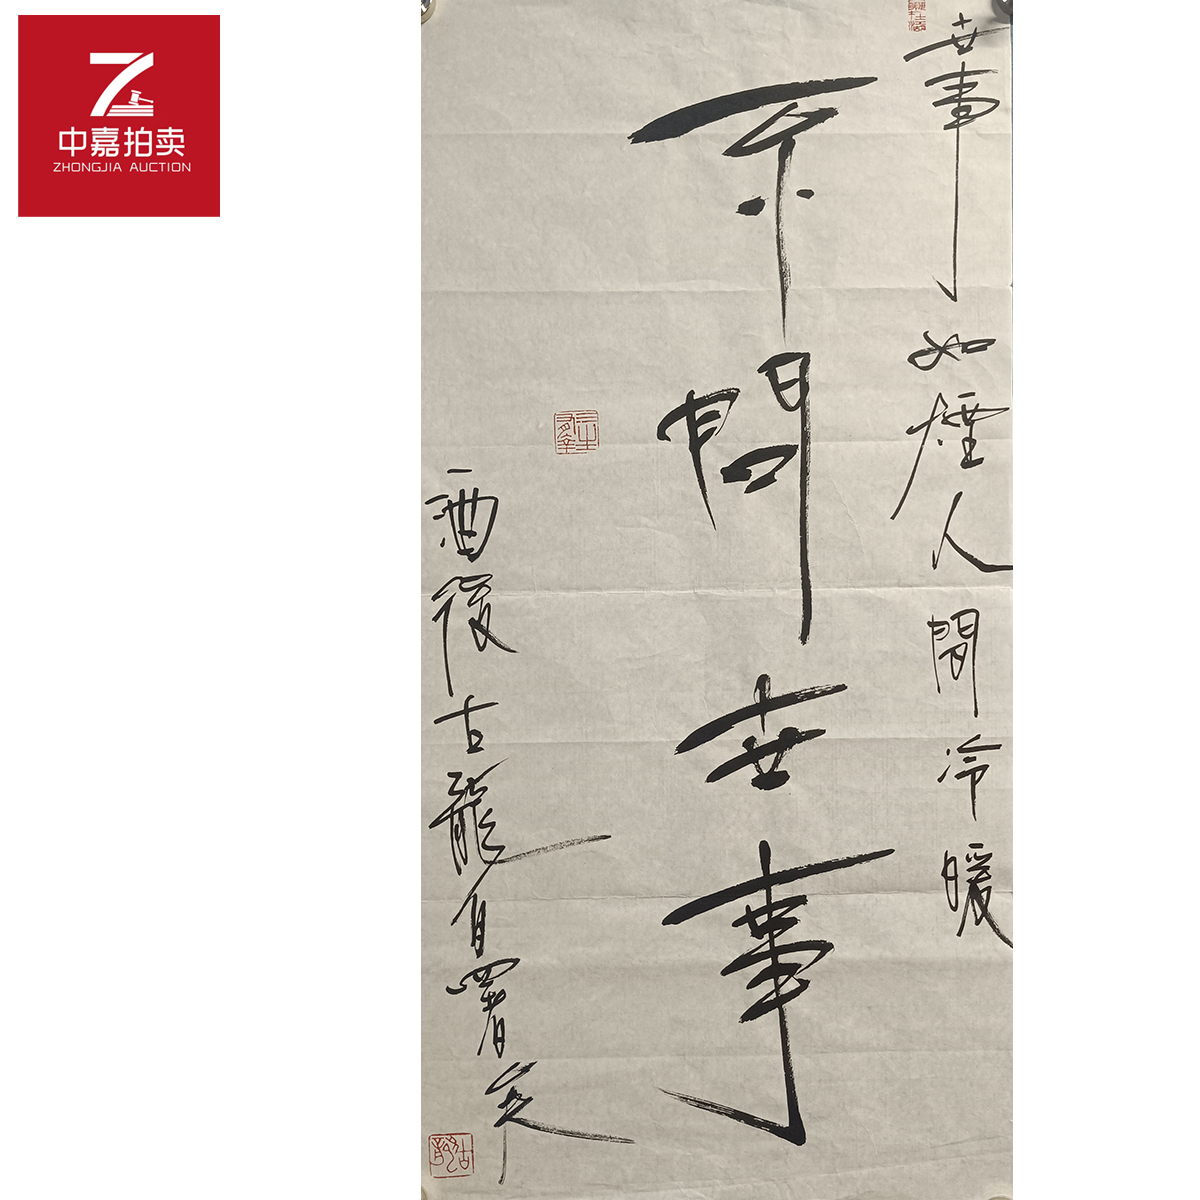 中嘉拍卖
ZHONGJIA AUCTION
世事如煙人間冷暖
不問世事
酒後古龍自署笑
古龍